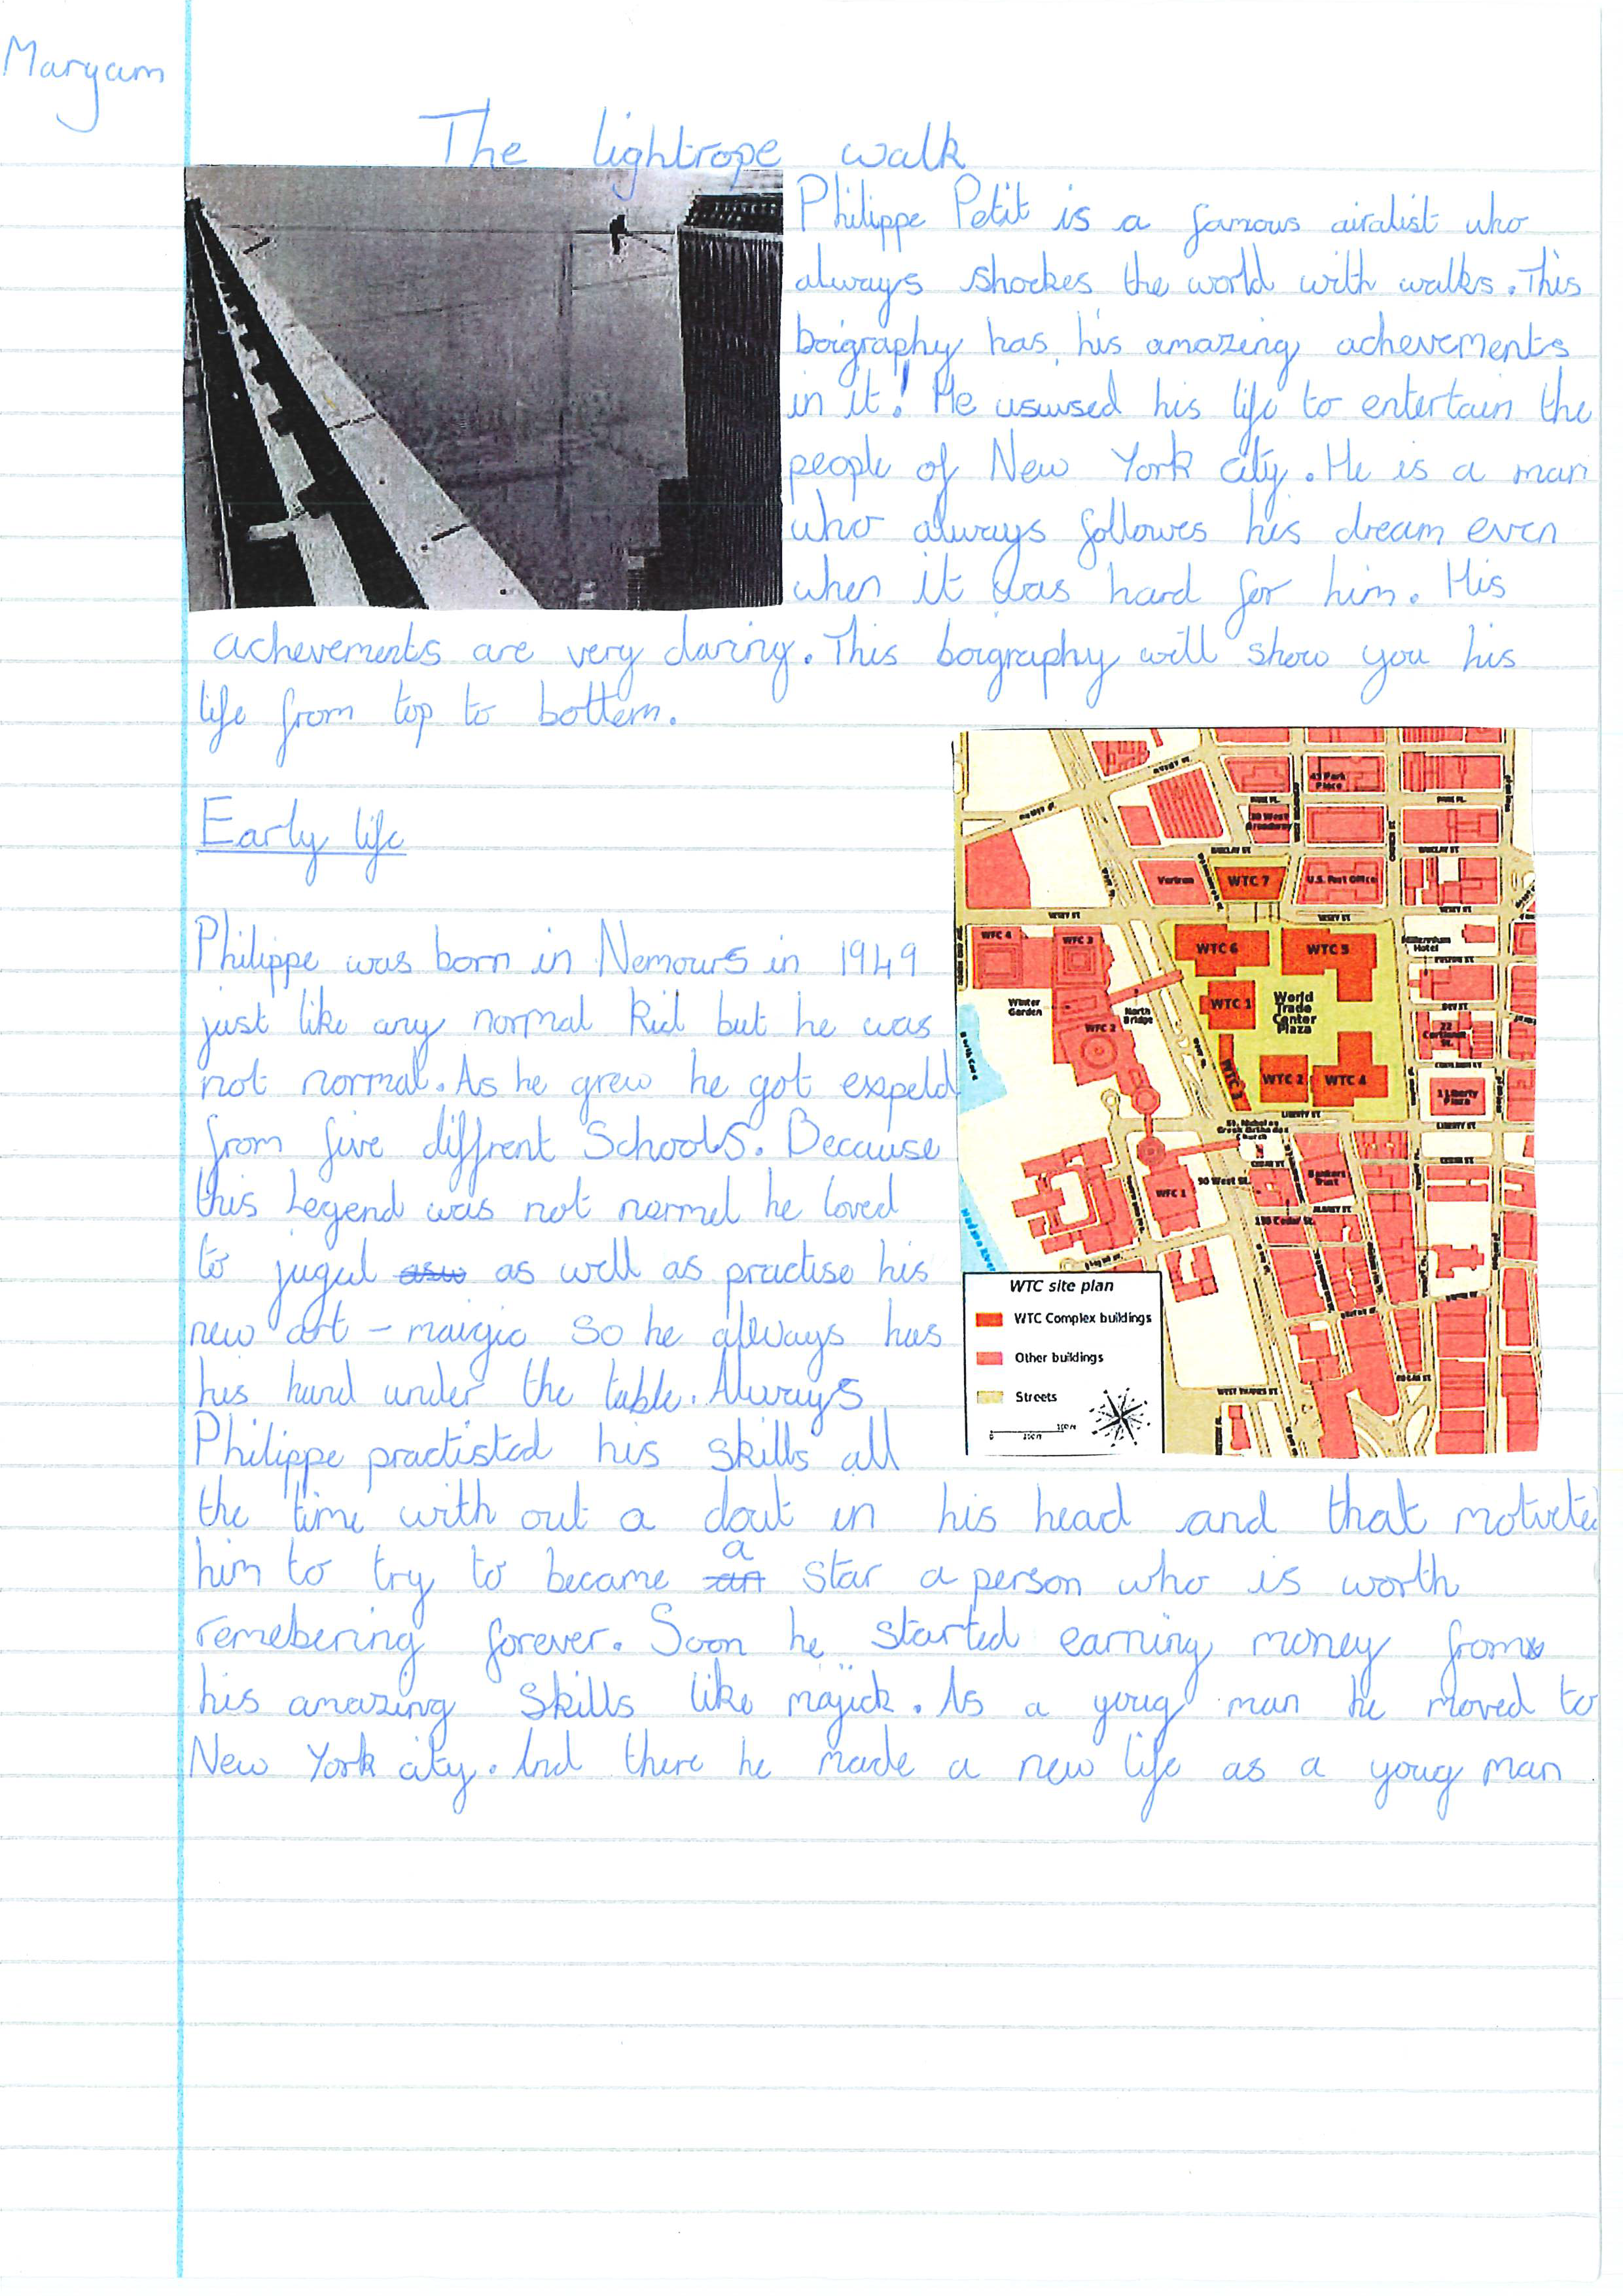 Maryam
The lightrope walk
Philippe Petit is a famous airalist who
always shockes the world with walks. This
boigraphy has his amazing achevements
in it! He usused his life to entertain the
people of New York city. He is a man
who always followes his dream even
when it was hard for him. His
achevements are very daring. This boigraphy will show you his
life from top to bottem.
Early life
Philippe was born in Nemours in 1949
just like any normal kid but he was
not normal. As he grew he got expeld
from five diffrent Schools. Because
this Legend was not normel he loved
to jugul as well as practise his
new art - maigic so he allways has
his hand under the table. Always
Philippe practisted his skills all
the time with out a dout in his head and that motiveted
him to try to became a star a person who is worth
remebering forever. Soon he started earning money from
his amazing skills like majick. As a youg man he moved to
New York city. And there he made a new life as a youg man
45 Park Place
PARK PL.
BARCLAY ST
Verizon
WTC 7
U.S. Post Office
VESEY ST
WFC 4
WFC 3
WTC 6
WTC 5
Millennium Hotel
Winter Garden
North Bridge
WTC 1
World Trade Center Plaza
WFC 2
WTC 3
WTC 2
WTC 4
1 Liberty Plaza
LIBERTY ST
St. Nicholas Greek Orthodox Church
90 West St.
Bankers Trust
WFC 1
130 Cedar St.
ALBANY ST
WTC site plan
WTC Complex buildings
Other buildings
Streets